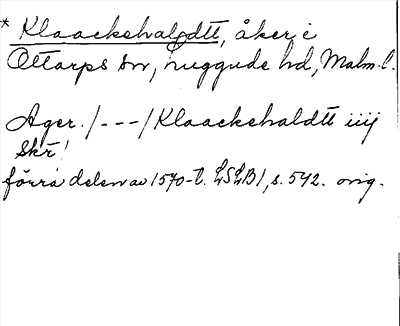 * Klaackehaldtt, åker i
Ottarps sn, Luggude hd, Malm. l.
Ager. /---/ Klaackehaldtt iiij
Skr!
förra delen av 1570-t. LSLB1, s. 542. orig.